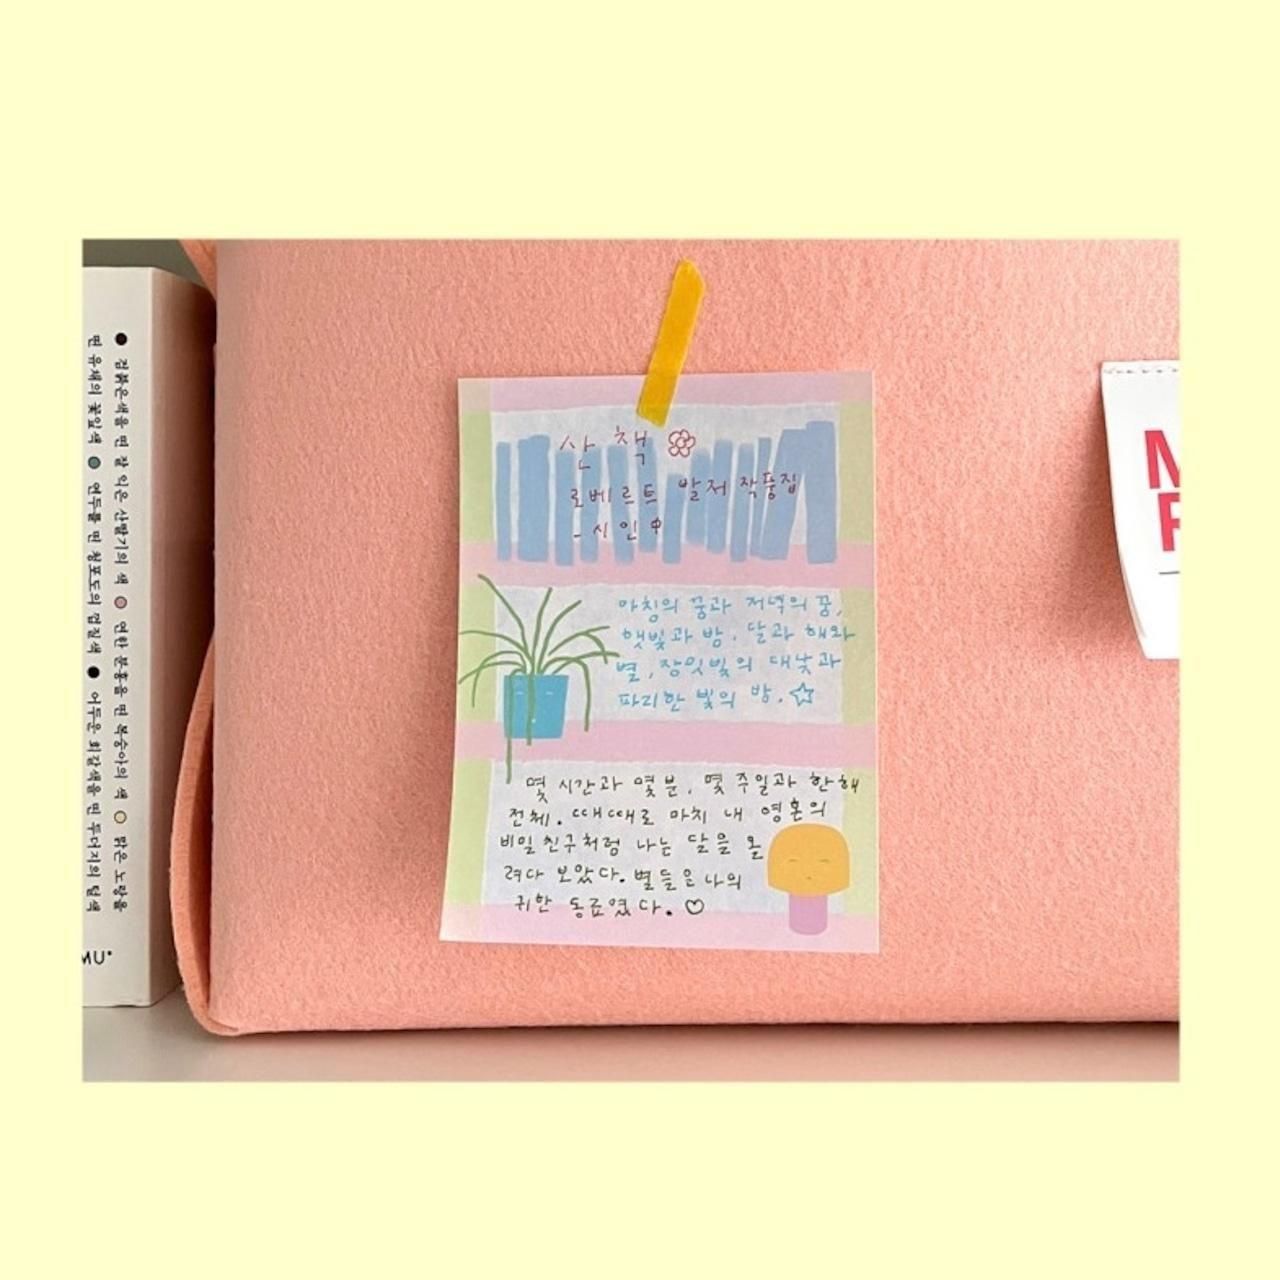 검붉은색을 띤 잘 익은 산딸기의 색 연한 분홍을 띤 복숭아의 색 맑은 노랑을
띤 유채의 꽃잎색 연두를 띤 청포도의 껍질색 어두운 회갈색을 띤 두더지의 털색
MU
산책
로베르트 발저 작품집
- 시인
아침의 꿈과 저녁의 꿈,
햇빛과 밤. 달과 해와
별, 장밋빛의 대낮과
파리한 빛의 밤. ☆
몇 시간과 몇분, 몇 주일과 한해
전체. 때때로 마치 내 영혼의
비밀 친구처럼 나는 달을 올
려다 보았다. 별들은 나의
귀한 동료였다. ♡
M